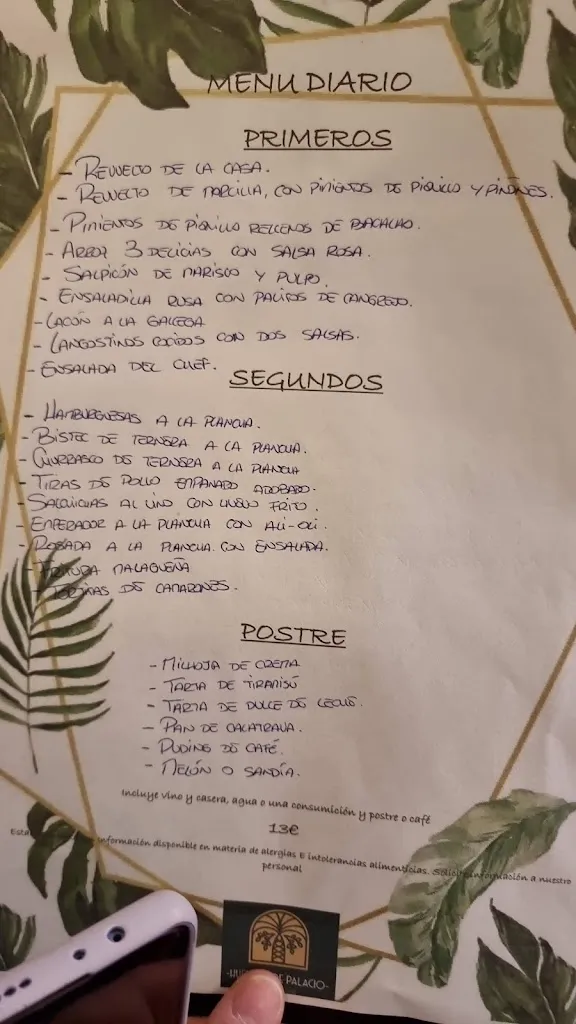 MENU DIARIO
PRIMEROS
- REVUELTO DE LA CASA.
- REVUELTO DE MORCILLA, CON PIMIENTOS DE PIQUILLO Y PIÑONES.
- PIMIENTOS DE PIQUILLO RELLENOS DE BACALAO.
- ARROZ 3 DELICIAS CON SALSA ROSA.
- SALPICÓN DE MARISCO Y PULPO.
- ENSALADILLA RUSA CON PALITOS DE CANGREJO.
- LACÓN A LA GALLEGA
- LANGOSTINOS COCIDOS CON DOS SALSAS.
- ENSALADA DEL CHEF.
SEGUNDOS
- HAMBURGUESAS A LA PLANCHA.
- BISTEC DE TERNERA A LA PLANCHA.
- CHURRASCO DE TERNERA A LA PLANCHA
- TIRAS DE POLLO EMPANADO ADOBADO.
- SALCHICHAS AL VINO CON HUEVO FRITO.
- EMPERADOR A LA PLANCHA CON ALI-OLI.
- ROSADA A LA PLANCHA CON ENSALADA.
- FRITURA MALAGUEÑA
- TORTITAS DE CAMARONES.
POSTRE
- MILHOJA DE CREMA
- TARTA DE TIRAMISÚ
- TARTA DE DULCE DE LECHE.
- PAN DE CALATRAVA.
- PUDING DE CAFÉ.
- MELÓN O SANDÍA.
Incluye vino y casera, agua o una consumición y postre o café
13€
información disponible en materia de alergias E intolerancias alimenticias. Solicite información a nuestro
personal
DE PALACIO-